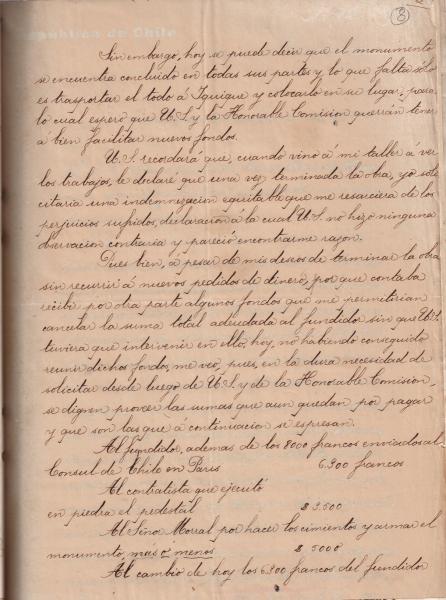 8
República de Chile
Sin embargo, hoy se puede decir que el monumento
se encuentra concluido en todas sus partes y lo que falta sólo
es trasportar el todo á Iquique y colocarlo en su lugar, para
lo cual espero que U.S. y la Honorable Comision querrán tener
á bien facilitar nuevos fondos.
U.S. recordará que, cuando vino á mi taller á ver
los trabajos, le declaré que una vez terminada la obra, yo soli-
citaria una indemnizacion equitable que me resarciera de los
perjuicios sufridos, declaracion á la cual U.S. no hizo ninguna
observacion contraria y pareció encontrarme razon.
Pues bien, á pesar de mis deseos de terminar la obra
sin recurrir á nuevos pedidos de dinero, porque contaba
recibir por otra parte algunos fondos que me permitirian
cancelar la suma total adeudada al fundidor sin que U.S.
tuviera que intervenir en ello, hoy, no habiendo conseguido
reunir dichos fondos, me veo, pues, en la dura necesidad de
solicitar desde luego de U.S. y de la Honorable Comision
se dignen proveer las sumas que aun quedan por pagar
y que son las que á continuacion se espresan.
Al fundidor, ademas de los 8000 francos enviados al
Consul de Chile en Paris 6.900 francos
Al contratista que ejecutó
en piedra el pedestal $ 3.500
Al Señor Morral por hacer los cimientos y armar el
monumento, mas o menos $ 5000
Al cambio de hoy los 6.900 francos del fundidor